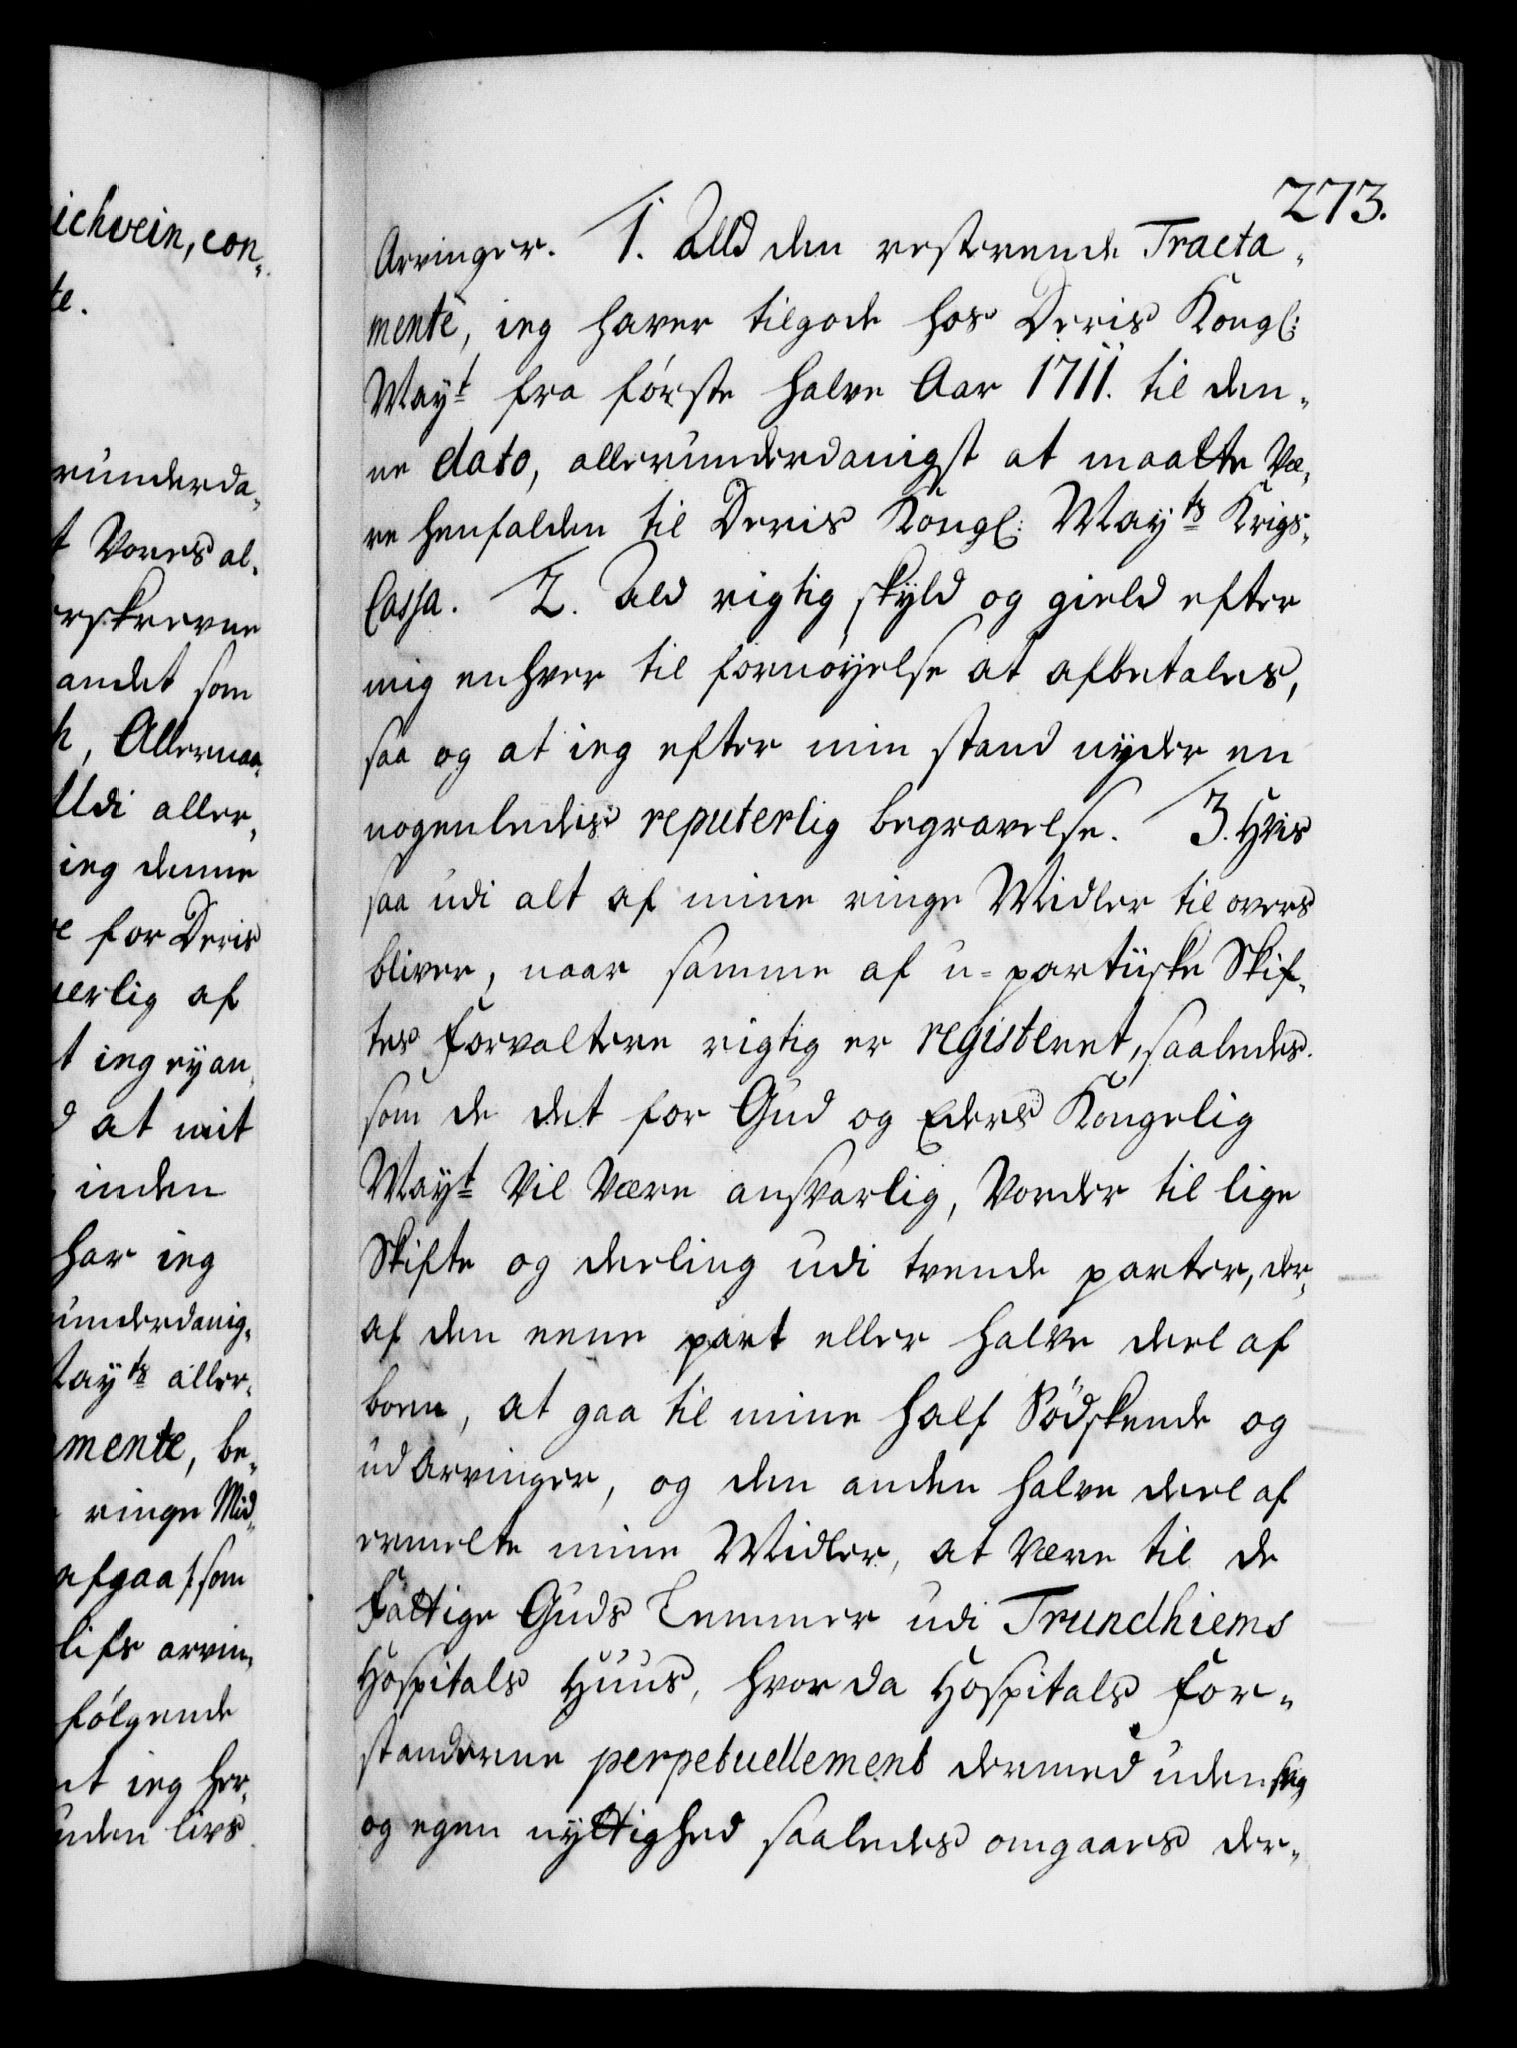 ichvein, con-
te.
runderda-
t Vores al-
erskrevne
andet som
h, Allernaa-
Udi aller-
ieg denne
e for Deris
erlig af
t ieg ey an-
d at mit
inden
har ieg
underdanig-
Mayts aller-
mente, be-
ringe Mid-
afgaa /: som
lifs arvin-
følgende
nt ieg her-
uden livs
273.
Arvinger. 1. Alld den resterende Tracta-
mente, ieg haver tilgode hos Deris Kongl:
Mayt fra første halve Aar 1711. til den-
ne dato, allerunderdanigst at maatte Væ-
re henfalden til Deris Kongl: Mayts Krigs-
Cassa. 2. Ald rigtig skyld og gield efter
mig enhver til fornøyelse at afbetales,
saa og at ieg efter min stand nyder en
nogenledis reputerlig begravelse. 3. Hvis
saa udi alt af mine ringe Midler til overs
bliver, naar samme af u-partiiske Skif-
tes Forvaltere rigtig er registeret, saaledes
som de det for Gud og Eders Kongelig
Mayt Vil Være ansvarlig, Vorder til lige
Skifte og deeling udi tvende parter, der-
af den eene part eller halve deel af
boen, at gaa til mine half Södskende og
ud Arvinger, og den anden halve deel af
ermelte mine Midler, at Være til de
Fattige Guds Lemmer udi Trundhiems
Hospitals Huus, hvor da Hospitals For-
standerne perpetuellement dermed uden svig
og egen nyttighed saaledes omgaaes der-